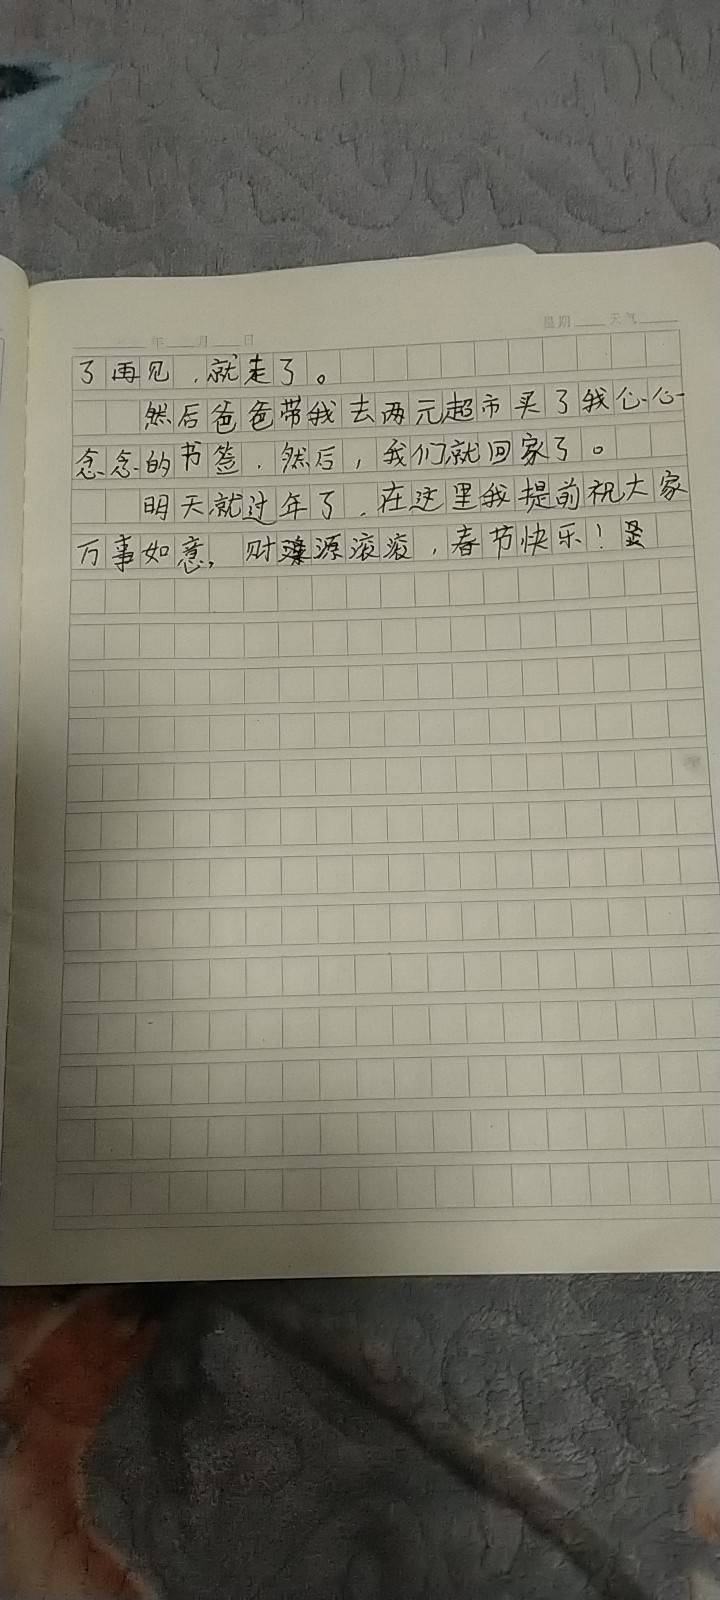 年 月 日 星期 天气
了再见，就走了。
然后爸爸带我去两元超市买了我心心
念念的书签，然后，我们就回家了。
明天就过年了，在这里我提前祝大家
万事如意，财源滚滚，春节快乐！